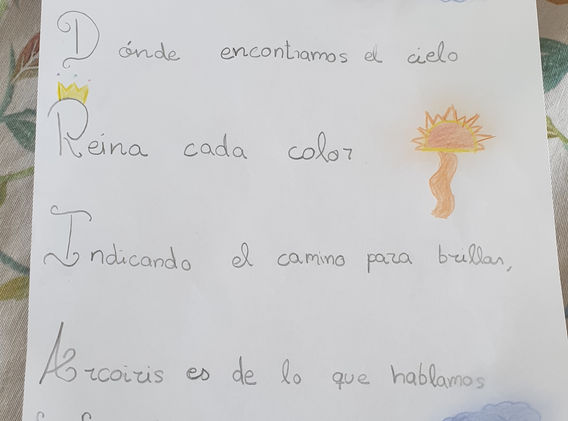 Dónde encontramos el cielo
Reina cada color
Indicando el camino para brillar,
Arcoiris es de lo que hablamos